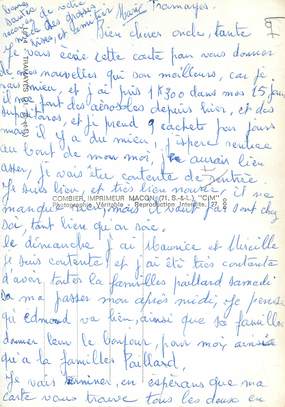 Tramayes
Bien chers oncle, tante
Je vous écris cette carte pour vous donner
de mes nouvelles qui son meilleurs, car je
vais mieux, et j'ai pris 1k300 dans mes 15 jours
il me font des aérosoles depuis hier, et des
supositoires, et je prend 9 cachets par jours
mais il y a du mieu, j'espère rentrée
au bout de mon moi, je aurais bien
asser, je vais être contente de rentrée.
Je suis bien, et très bien nourrie, il ne
COMBIER IMPRIMEUR MACON (71, S.-&-L.) "CIM"
manque rien, mais sa vaut pas ont chez
Photographie Véritable - Reproduction Interdite
soi, tant bien qu'on soie.
le démanche j'ai Maurice et Mireille
je suis contente, et j'ai été très contente
d'avoir toutes la familles paillard samedi
sa ma passer mon après midi, Je pense
qui edmond va bien, ainsi que sa familles
donner leur le bonjour, pour moi ainsi
qu'à la familles Paillard,
Je vais terminer, en espérans que ma
carte vous trouve tous les deux en
bonne
santé
de grosses
bises, et
Marie